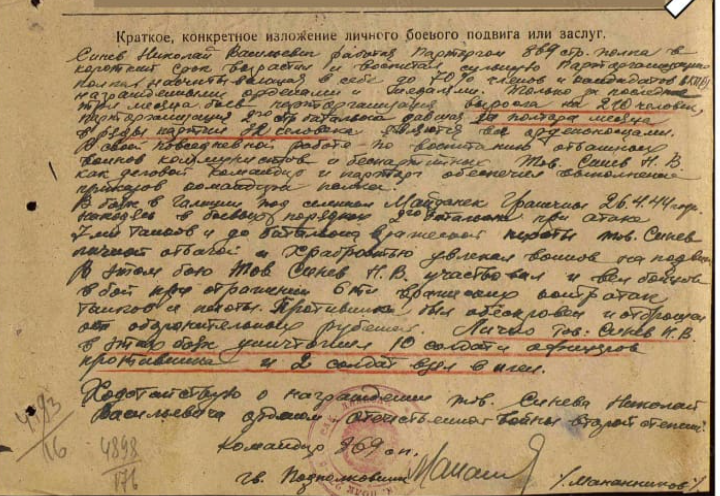 Краткое, конкретное изложение личного боевого подвига или заслуг.
Синев Николай Васильевич работая Парторгом 869 стр. полка в
короткий срок возрастил и воспитал сильную Парторганизацию
полка насчитывающая в себе до 70% членов и кандидатов ВКП(б)
награжденными орденами и медалями. Только за последние
три месяца боев парторганизация выросла на 210 человек,
парторганизация 2го стр. батальона давшая за полтора месяца
в ряды партии 82 человека являются все орденоносцами.
В своей повседневной работе по воспитанию отважных
воинов коммунистов и беспартийных Тов. Синев Н.В.
как деловой командир и парторг обеспечил выполнение
приказов командира полка.
В боях в Галиции под селением Майданек 26.4.44 года
находясь в боевых порядках батальона при атаке
7 ми танков и до батальона вражеской пехоты тов. Синев
личной отвагой и храбростью увлекал воинов на подвиги
В этом бою Тов Синев Н.В. участвовал и вел бойцов
в бой при отражении 6 ти вражеских контратак
танков и пехоты. Противник был обескровлен и отброшен
от оборонительных рубежей. Лично тов. Синев Н.В.
в этих боях уничтожил 10 солдат и офицеров
противника и 2х солдат взял в плен.
Ходатайствую о награждении тов. Синева Николай
Васильевича орденом отечественной войны второй степени.
Командир 869 сп.
гв. Подполковник /Мананников/
4898
176